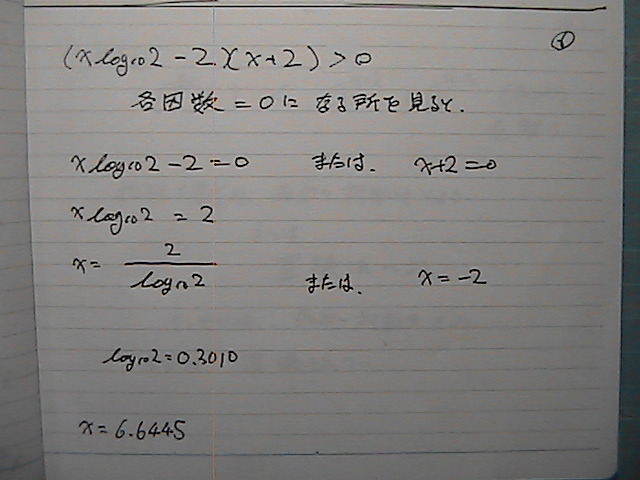 ①
(x log₁₀2 - 2)(x+2) > 0
各因数 = 0 に なる所を見ると.
x log₁₀2 - 2 = 0 または. x+2 = 0
x log₁₀2 = 2
x = 2 / log₁₀2 または. x = -2
log₁₀2 = 0.3010
x = 6.6445